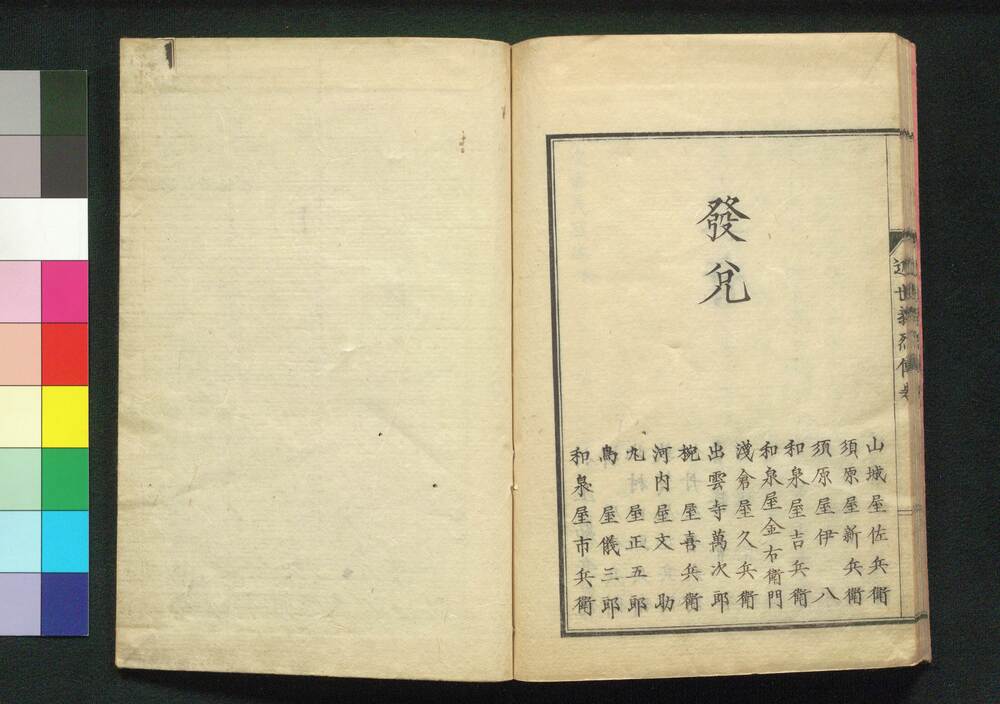 發兌
山城屋佐兵衛
須原屋新兵衛
須原屋伊八
和泉屋吉兵衛
和泉屋金右衛門
淺倉屋久兵衛
出雲寺萬次郎
椀屋喜兵衛
河内屋文助
丸屋正五郎
島屋儀三郎
和泉屋市兵衛
近世